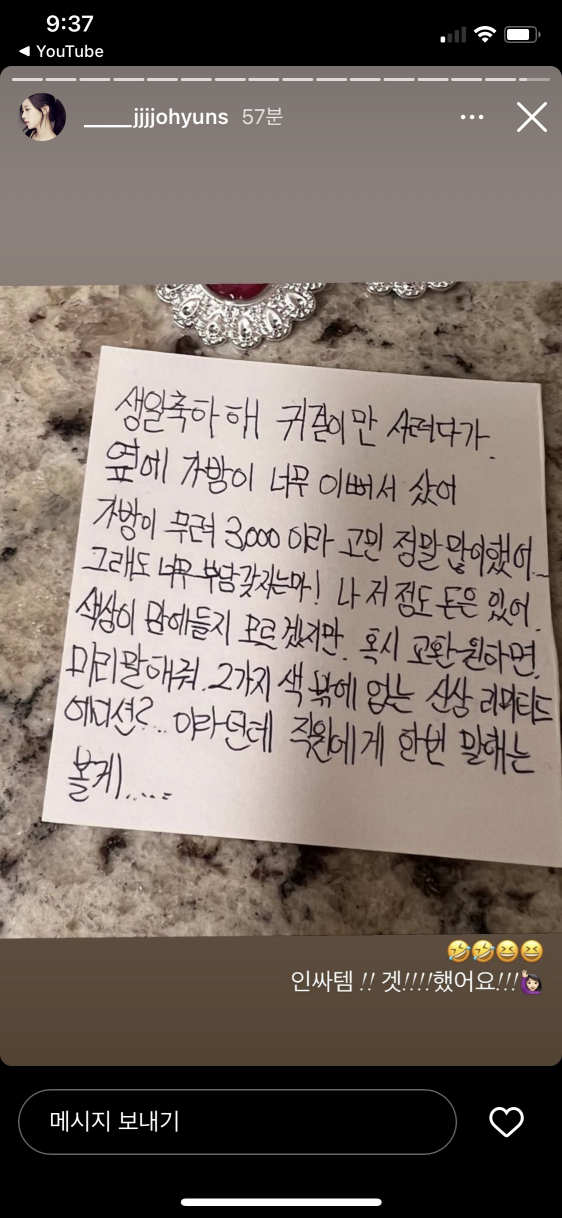 9:37
◀ YouTube
____jjjjohyuns 57분
생일축하해 귀걸이만 사려다가.
옆에 가방이 너무 이뻐서 샀어
가방이 무려 3,000이라 고민 정말 많이했어...
그래도 너무 부담갖지는마! 나 저정도 돈은 있어.
색상이 맘에들지 모르겠지만. 혹시 교환원하면.
미리말해줘. 2가지 색 밖에 없는 신상 리미티드
에디션?... 이라던데 직원에게 한번 말해는
볼게.....
🤣🤣😆😆
인싸템 !! 겟!!!!했어요!!!🙋🏻‍♀️
메시지 보내기